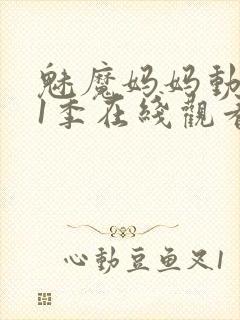 魅魔妈妈動
1季在綫觀看
心動豆鱼又1